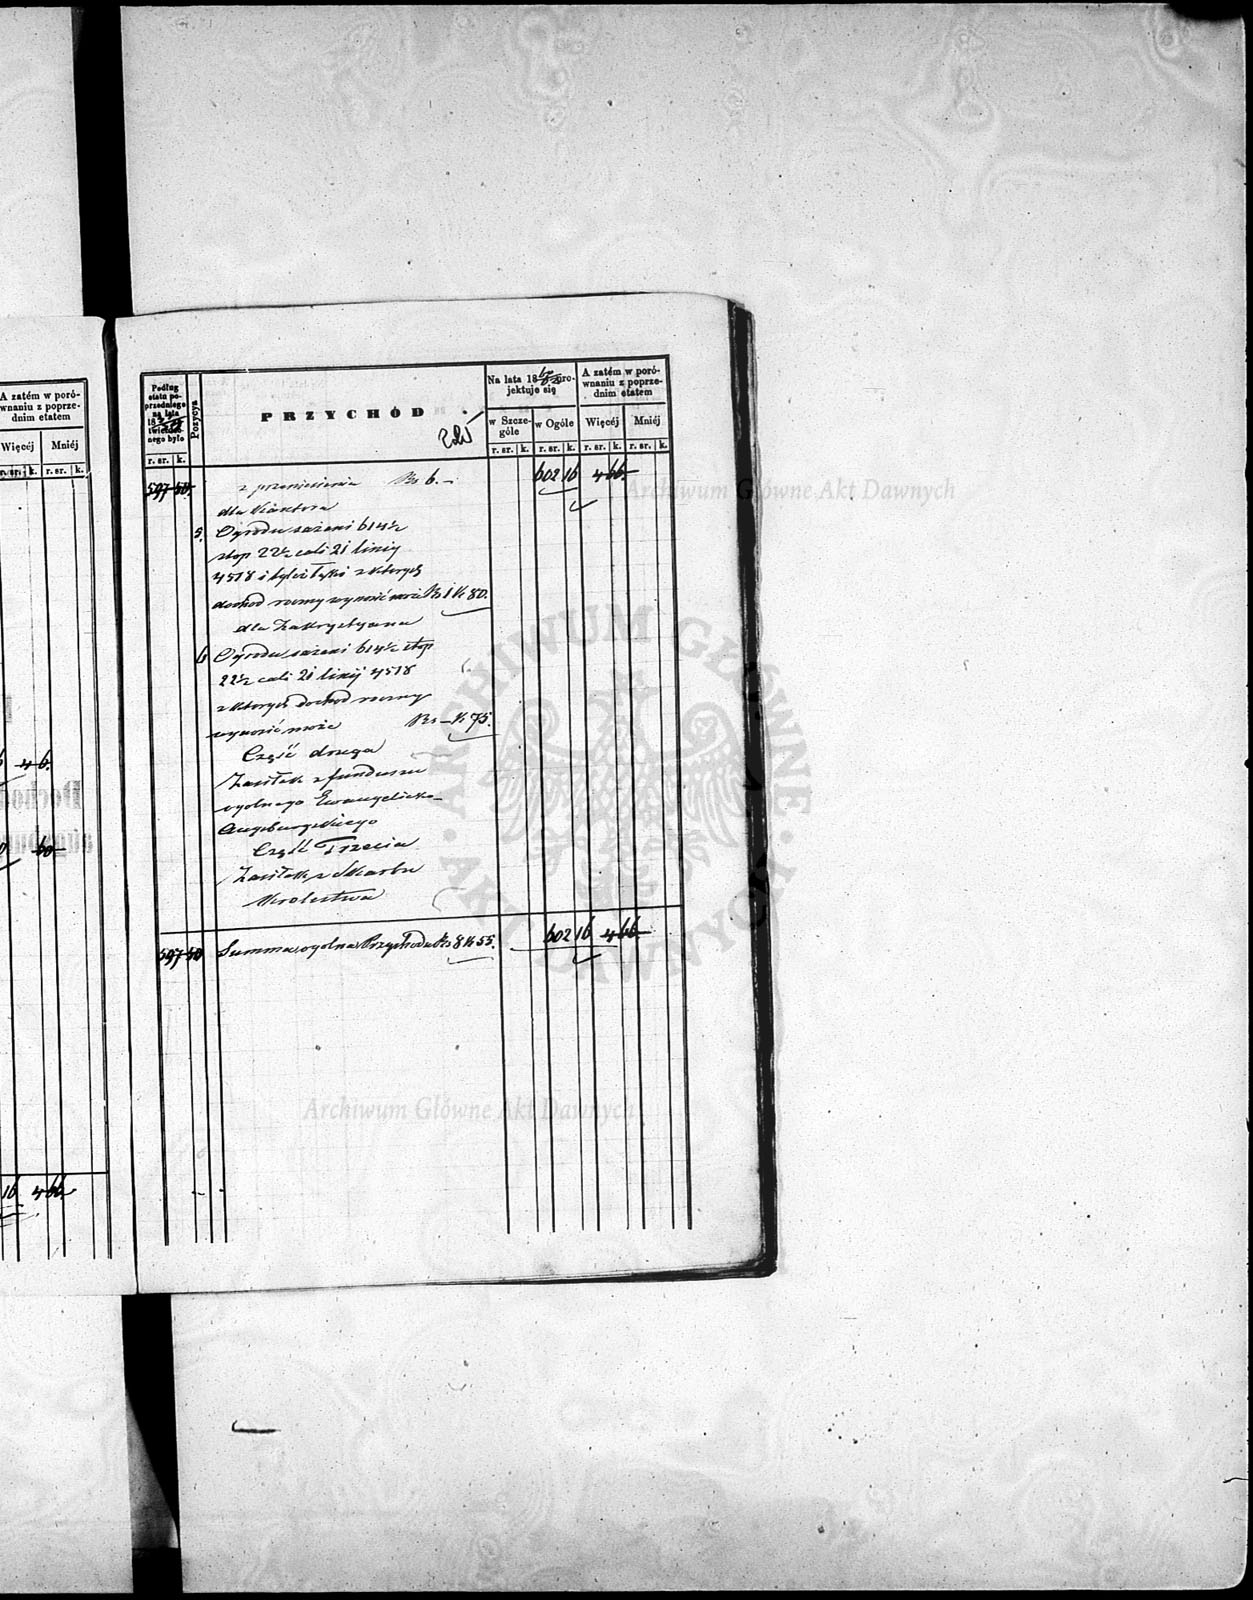 A zatém w poró-
wnaniu z poprze-
dnim etatem
Więcéj Mniéj
r. sr. k. r. sr. k.
4 6.
60
16 4 66
Podług
etatu po-
przedniego
na lata
18
nego było
r. sr. k.
Pozycya
PRZYCHÓD
Na lata 18 pro-
jektuje się
w Szcze-
góle
w Ogóle
r. sr. k. r. sr. k.
A zatém w poró-
wnaniu z poprze-
dnim etatem
Więcéj Mniéj
r. sr. k. r. sr. k.
597 50. z przeniesienia Rs 6. – 602 16 4 66.
dla Kantora
5. Ogrodu sażeni 614½
stop 22½ cali 21 linij
4518 i łąki z których
dochod roczny wynosić może Rs 1 K 80.
dla Zakrystyana
6 Ogrodu sażeni 614½ stop
22½ cali 21 linij 4518
z których dochod roczny
wynosić może Rs – K 75.
Część druga
Zasiłek z funduszu
ogolnego Ewangelicko-
Augsburgskiego
Część Trzecia
Zasiłek z Skarbu
Krolestwa
597 50 Summa ogolna Przychodu Rs 8 K 55. 602 16 4 66.
Archiwum Główne Akt Dawnych
ARCHIWUM GŁÓWNE
AKT DAWNYCH
Archiwum Główne Akt Dawnych